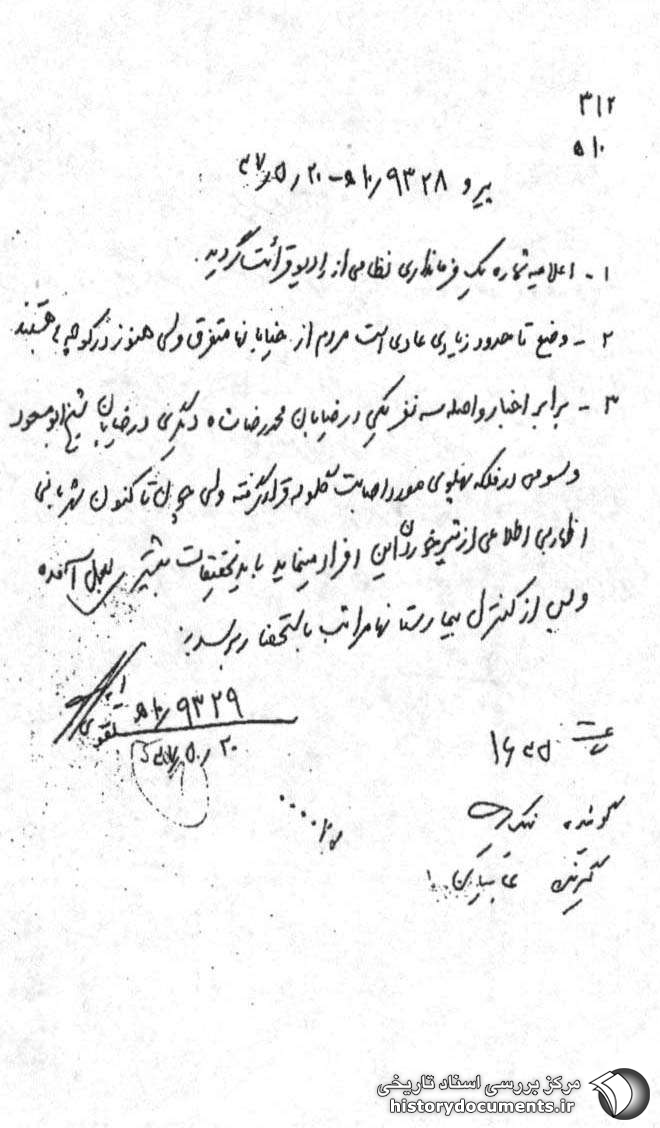 ۳۱۲
۱۰ ه
پیرو ۹۳۲۸ /۱۰ ه - ۲۰ /۵ /۳۷
۱ - اعلامیه شماره یک فرمانداری نظامی از رادیو قرائت گردید.
۲ - وضع تا حدود زیادی عادی است مردم از خیابانها متفرق ولی هنوز در کوچه ها هستند
۳ - برابر اخبار واصله سه نفر یکی در خیابان محمدرضا شاه دیگری در خیابان شیخ ابو مسعود
و سومی در فلکه پهلوی مورد اصابت گلوله قرار گرفته ولی چون تا کنون شهربانی
اظهار بی اطلاعی از تیر خوردن این افراد مینماید باید تحقیقات بیشتر بعمل آمده
و پس از کنترل بیمارستانها مراتب باستحضار برسد.
تقوی
۹۳۲۹ /۱۰ ه
۲۰ /۵ /
ساعت
گوینده
گیرنده
مرکز بررسی اسناد تاریخی
historydocuments.ir